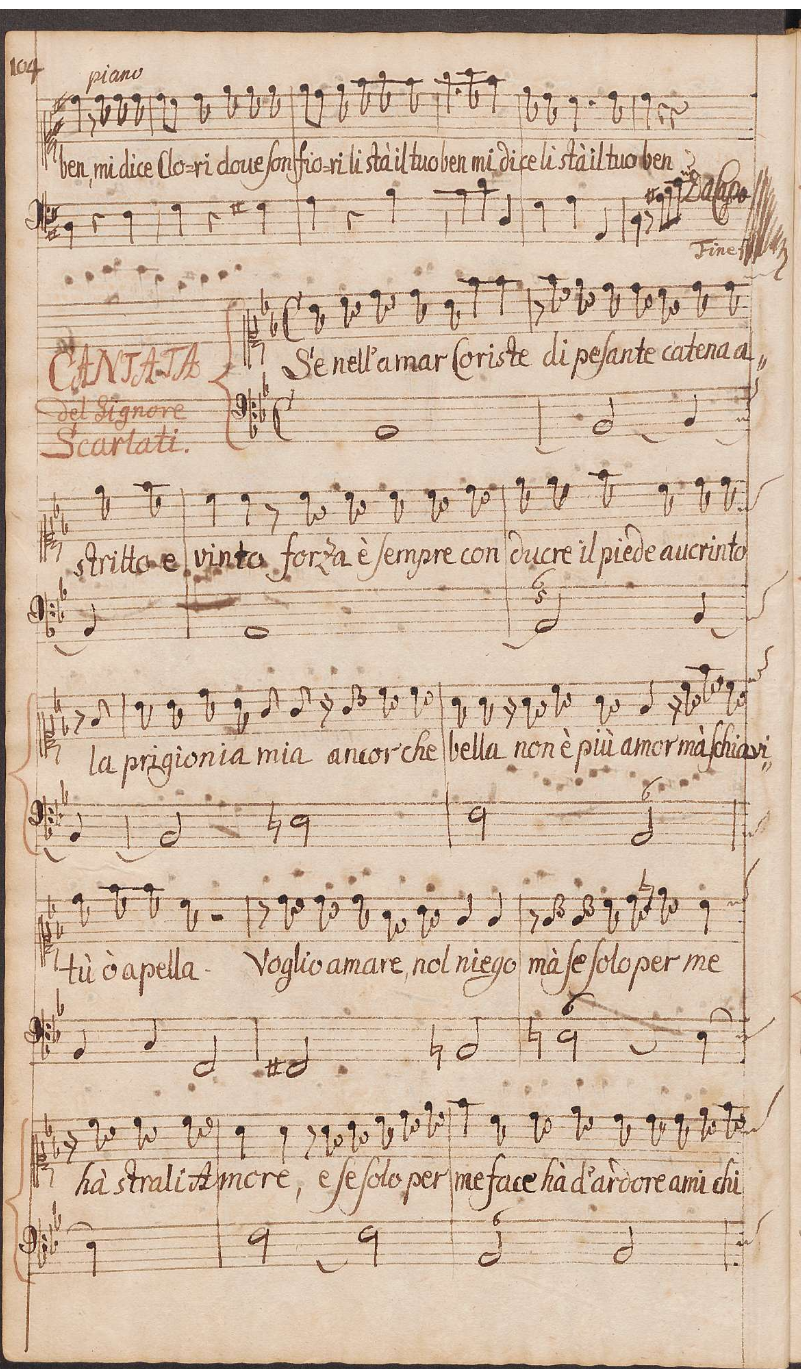 104
piano
ben, mi dice Clo=ri doue son fio=ri li stà il tuo ben mi dice li stà il tuo ben
Da Capo
Fine
CANTATA
del Signore
Scarlati.
Se nell'amar Coriste di pesante catena a„
stritto e vinto forza è sempre con ducre il piede aucrinto
la prigionia mia ancor che bella non è più amor mà schiavi„
tù ò apella. Voglio amare, nol niego mà se solo per me
hà strali Amore, e se solo per me face hà d'ardore ami chi